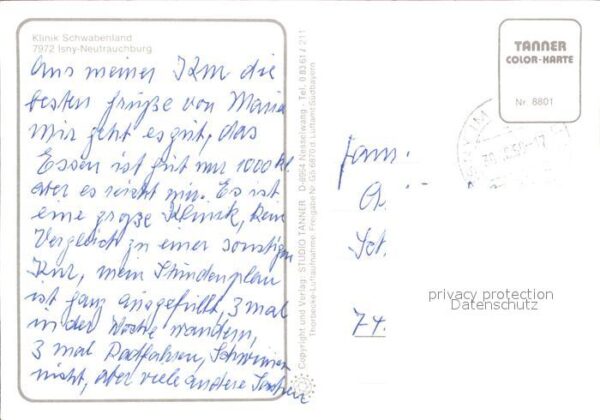 Klinik Schwabenland
7972 Isny-Neutrauchburg
Aus meiner Kur die
besten Grüße von Maria
Mir geht es gut, das
Essen ist gut nur 1000 kl.
aber es reicht mir. Es ist
eine große Klinik, kein
Vergleich zu einer sonstigen
Kur, mein Stundenplan
ist ganz ausgefüllt, 3 mal
in der Woche wandern,
3 mal Radfahren, Schwimmen
nicht, aber viele andere Sachen
Copyright und Verlag: STUDIO TANNER D-8964 Nesselwang · Tel. 0 83 61 / 211
Thorbecke-Luftaufnahme Freigabe Nr. GS 6870 d. Luftamt Südbayern
TANNER
COLOR-KARTE
Nr. 8801
Fam.
74
privacy protection
Datenschutz